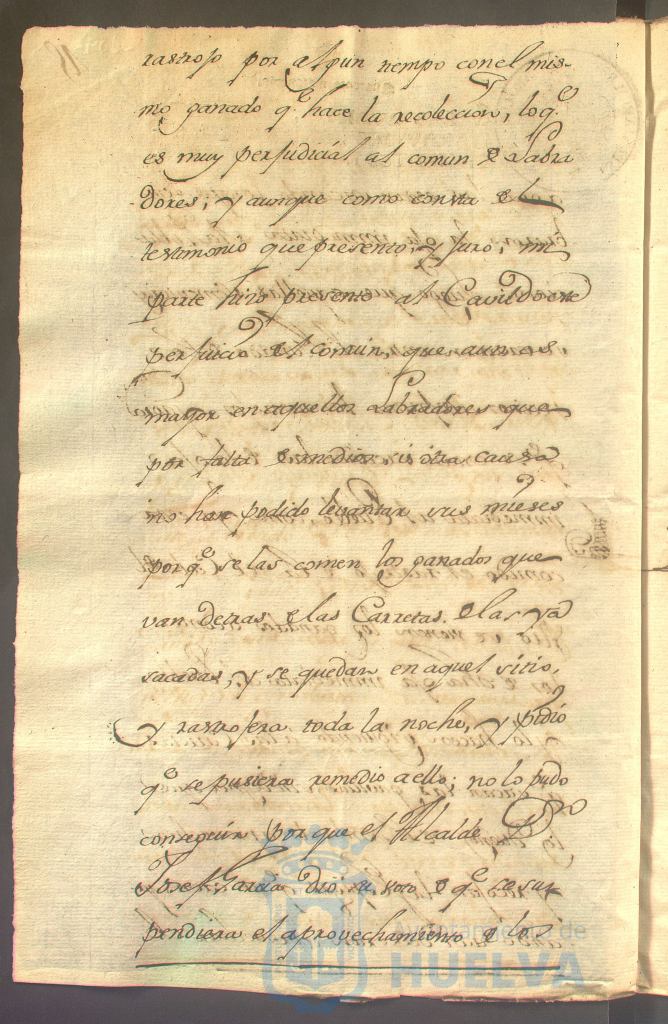 rastrojo por algun tiempo con el mis-
mo ganado q.e hace la recoleccion, lo q.e
es muy perjudicial al comun de Labra
dores; y aunque como consta de el
testimonio que presento, y juro, mi
parte hizo presente al Cavildo este
perjuicio del comun, que aun es
mayor en aquellos Labradores que
por falta de medios ú otra causa
no han podido levantar sus mieses
porq.e se las comen los ganados que
van detras de las Carretas de las ya
sacadas, y se quedan en aquel sitio,
y rastrojera toda la noche, y pidió
q.e se pusiera remedio a ello; no lo pudo
conseguir por que el Alcalde D.n
Josef Garcia dio su voto de q.e se sus
pendiera el aprovechamiento de los
HUELVA